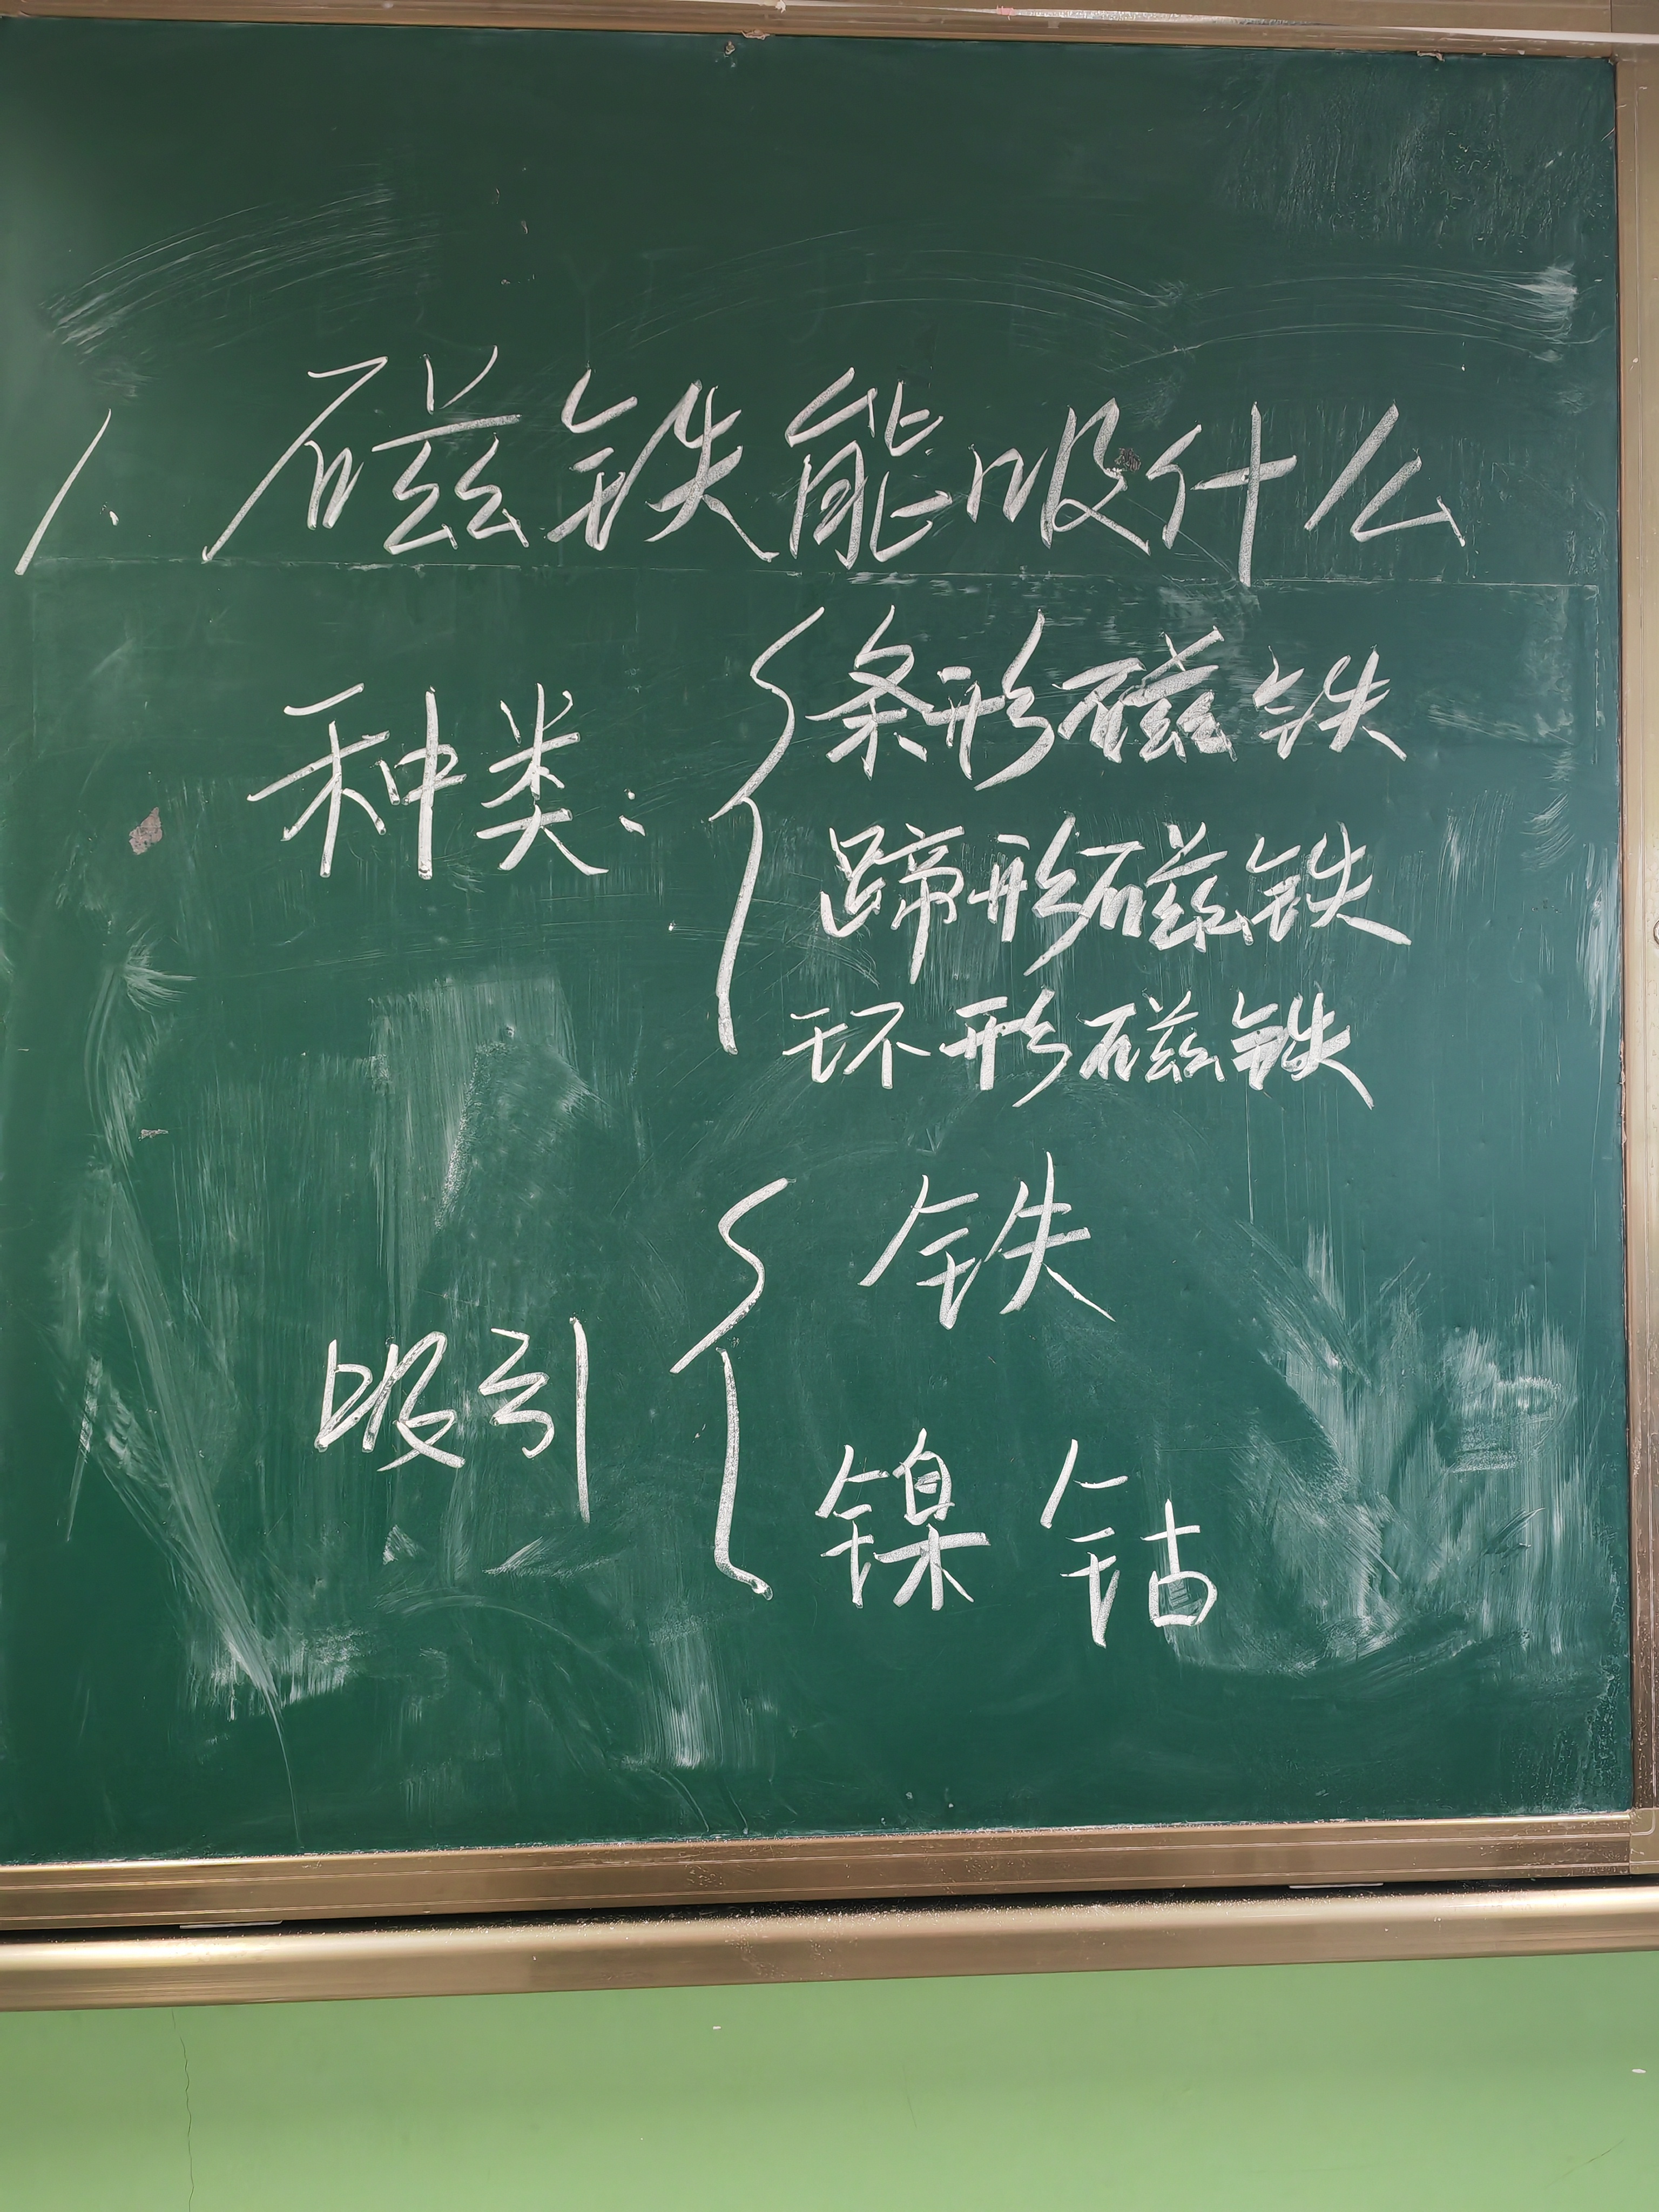 1. 磁铁能吸什么
种类：
条形磁铁
蹄形磁铁
环形磁铁
吸引
铁
镍 钴